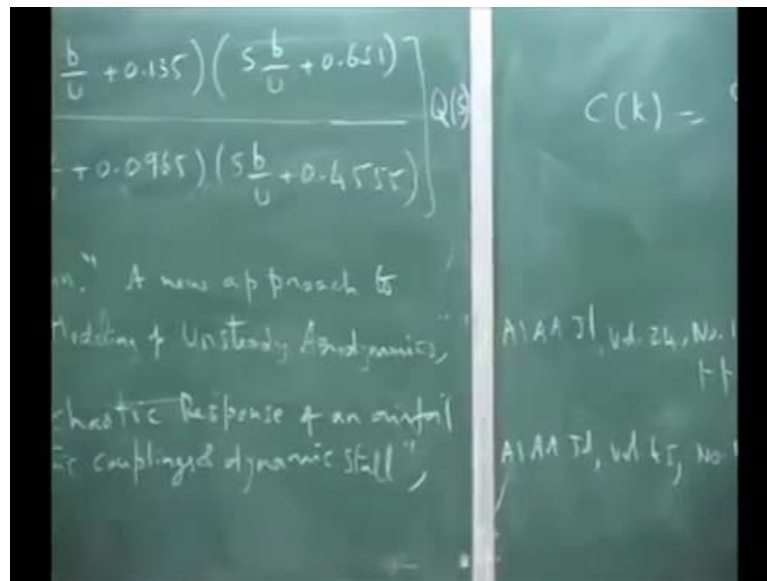 b/U + 0.135) (S b/U + 0.651)] Q(s)
+ 0.0965) (S b/U + 0.4555)
C(k) =
A new approach to
Modeling of Unsteady Aerodynamics,"
AIAA Jl, Vol. 24, No. 1
pp
chaotic Response of an airfoil
tic couplings & dynamic stall",
AIAA Jl, Vol 45, No